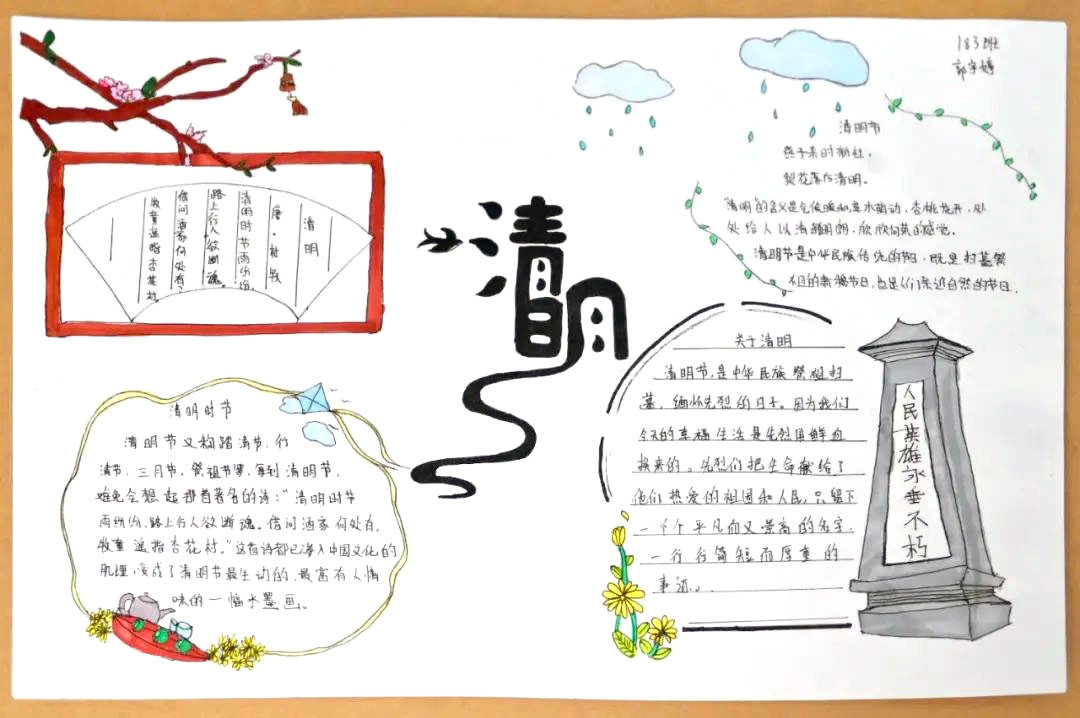 183班
清明
唐·杜牧
清明时节雨纷纷,
路上行人欲断魂。
借问酒家何处有?
牧童遥指杏花村。
清明
清明节
燕子来时新社,
梨花落后清明。
清明的含义是气候暖和,草木萌动,杏桃花开,处
处给人以清新明朗,欣欣向荣的感觉。
清明节是中华民族传统的节日,既是扫墓祭
祖的肃穆节日,也是人们亲近自然的节日.
清明时节
清明节又称踏清节,行
清节,三月节,祭祖节等,每到清明节,
难免会想起那首著名的诗:"清明时节
雨纷纷,路上行人欲断魂。借问酒家何处有,
牧童遥指杏花村。"这首诗都已渗入中国文化的
肌理,变成了清明节最生动的,最富有人情
味的一幅水墨画。
关于清明
清明节,是中华民族祭祖扫
墓,缅怀先烈的日子。因为我们
今天的幸福生活是先烈用鲜血
换来的。先烈们把生命献给了
他们热爱的祖国和人民,只留下
一个个平凡而又崇高的名字,
一行行简短而厚重的
事迹。
人民英雄永垂不朽